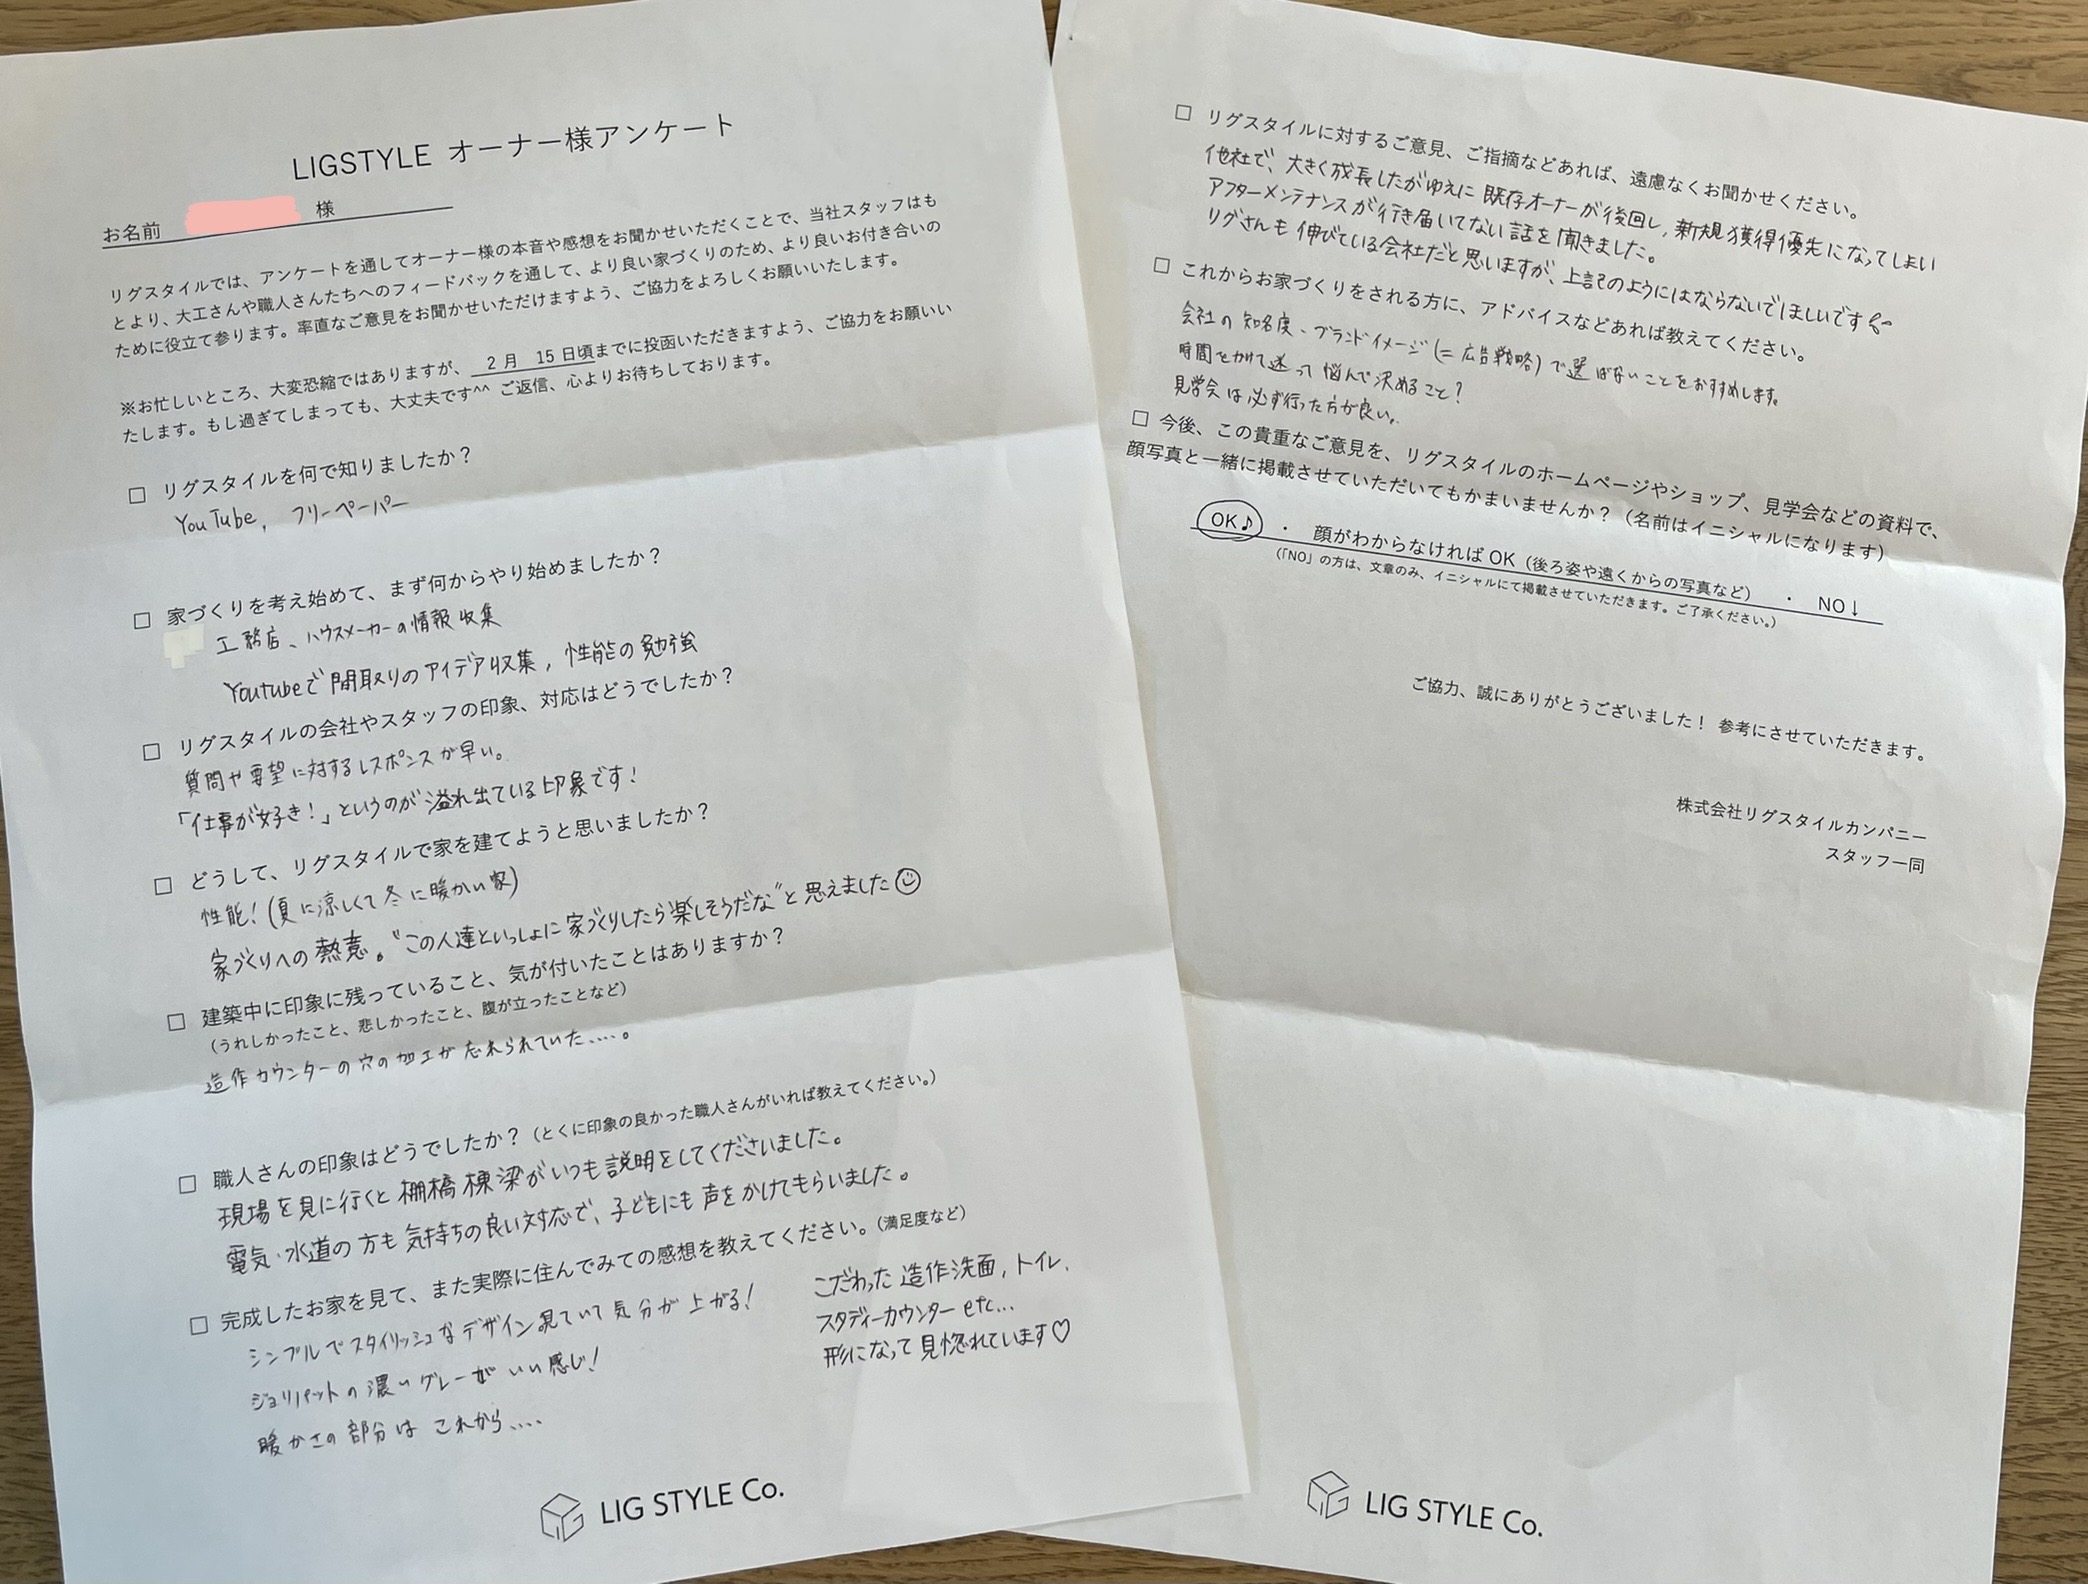 LIGSTYLE オーナー様アンケート
お名前 様
リグスタイルでは、アンケートを通してオーナー様の本音や感想をお聞かせいただくことで、当社スタッフはも
とより、大工さんや職人さんたちへのフィードバックを通して、より良い家づくりのため、より良いお付き合いの
ために役立て参ります。率直なご意見をお聞かせいただけますよう、ご協力をよろしくお願いいたします。
※お忙しいところ、大変恐縮ではありますが、 2月 15日頃までに投函いただきますよう、ご協力をお願いい
たします。もし過ぎてしまっても、大丈夫です^^ ご返信、心よりお待ちしております。
□ リグスタイルを何で知りましたか？
YouTube, フリーペーパー
□ 家づくりを考え始めて、まず何からやり始めましたか？
工務店、ハウスメーカーの情報収集
Youtubeで間取りのアイデア収集, 性能の勉強
□ リグスタイルの会社やスタッフの印象、対応はどうでしたか？
質問や要望に対するレスポンスが早い。
「仕事が好き!」というのが溢れ出ている印象です!
□ どうして、リグスタイルで家を建てようと思いましたか？
性能!(夏に涼しくて冬に暖かい家)
家づくりへの熱意。“この人達といっしょに家づくりしたら楽しそうだな”と思えました☺
□ 建築中に印象に残っていること、気が付いたことはありますか？
（うれしかったこと、悲しかったこと、腹が立ったことなど）
造作カウンターの穴の加工が忘れられていた.....。
□ 職人さんの印象はどうでしたか？（とくに印象の良かった職人さんがいれば教えてください。）
現場を見に行くと棚橋棟梁がいつも説明をしてくださいました。
電気・水道の方も気持ちの良い対応で、子どもにも声をかけてもらいました。
□ 完成したお家を見て、また実際に住んでみての感想を教えてください。（満足度など）
シンプルでスタイリッシュなデザイン見ていて気分が上がる!
ジョリパットの濃いグレーがいい感じ!
暖かさの部分は これから....
こだわった造作洗面, トイレ,
スタディーカウンター etc...
形になって見惚れています♡
LIG STYLE Co.
□ リグスタイルに対するご意見、ご指摘などあれば、遠慮なくお聞かせください。
他社で、大きく成長したがゆえに既存オーナーが後回し, 新規獲得優先になってしまい
アフターメンテナンスが行き届いてない話を聞きました。
リグさんも伸びている会社だと思いますが、上記のようにはならないでほしいです
□ これからお家づくりをされる方に、アドバイスなどあれば教えてください。
会社の知名度・ブランドイメージ(=広告戦略)で選ばないことをおすすめします。
時間をかけて迷って悩んで決めること?
見学会は必ず行った方が良い。
□ 今後、この貴重なご意見を、リグスタイルのホームページやショップ、見学会などの資料で、
顔写真と一緒に掲載させていただいてもかまいませんか？（名前はイニシャルになります）
OK♪ ・ 顔がわからなければOK（後ろ姿や遠くからの写真など） ・ NO↓
（「NO」の方は、文章のみ、イニシャルにて掲載させていただきます。ご了承ください。）
ご協力、誠にありがとうございました！ 参考にさせていただきます。
株式会社リグスタイルカンパニー
スタッフ一同
LIG STYLE Co.